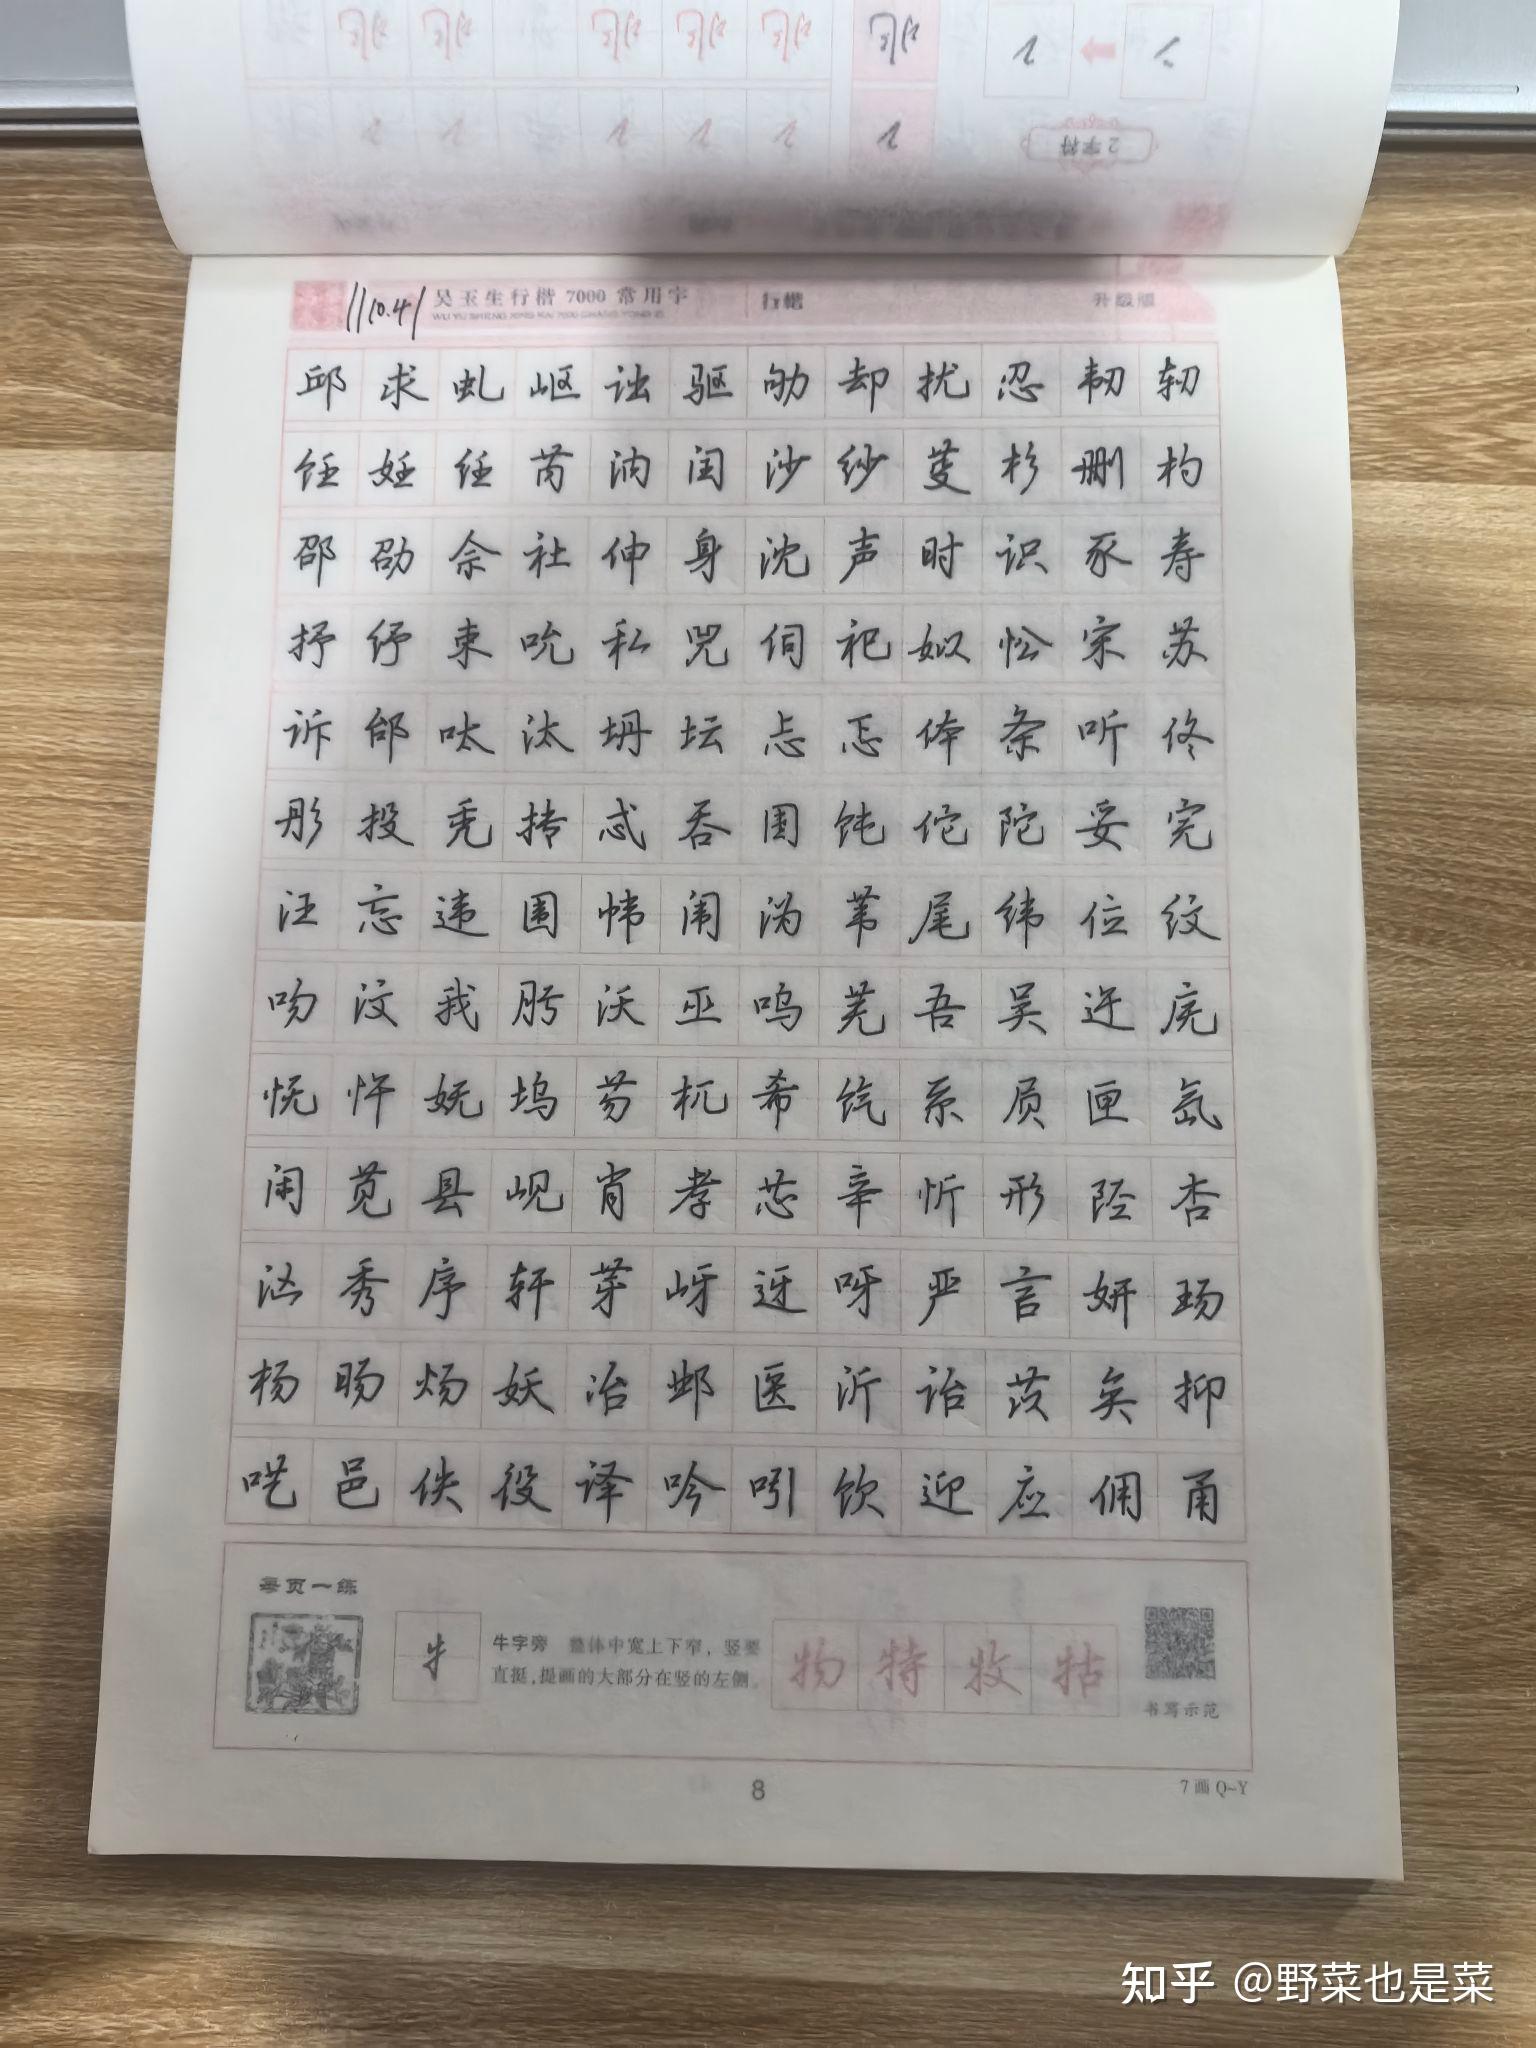 110.41
吴玉生行楷 7000 常用字 行楷 升级版
WU YU SHENG XING KAI 7000 CHANG YONG ZI
邱求虬岖诎驱劬却扰忍韧轫
饪妊纴芮汭闰沙纱芟杉删杓
邵劭佘社伸身沈声时识豕寿
抒纾束吮私兕伺祀姒忪宋苏
诉邰呔汰坍坛忐忑体条听佟
彤投秃抟忒吞囤饨佗陀妥完
汪忘违围帏闱沩苇尾纬位纹
吻汶我肟沃巫呜芜吾吴迕庑
怃忤妩坞芴杌希饩系屃匣氙
闲苋县岘肖孝芯辛忻形陉杏
汹秀序轩芽岈迓呀严言妍玚
杨旸炀妖冶邺医沂诒苡矣抑
呓邑佚役译吟吲饮迎应佣甬
每页一练
牛
牛字旁 整体中宽上下窄，竖要
直挺，提画的大部分在竖的左侧。
物特牧牯
书写示范
8
7画 Q~Y
2字符
知乎 @野菜也是菜